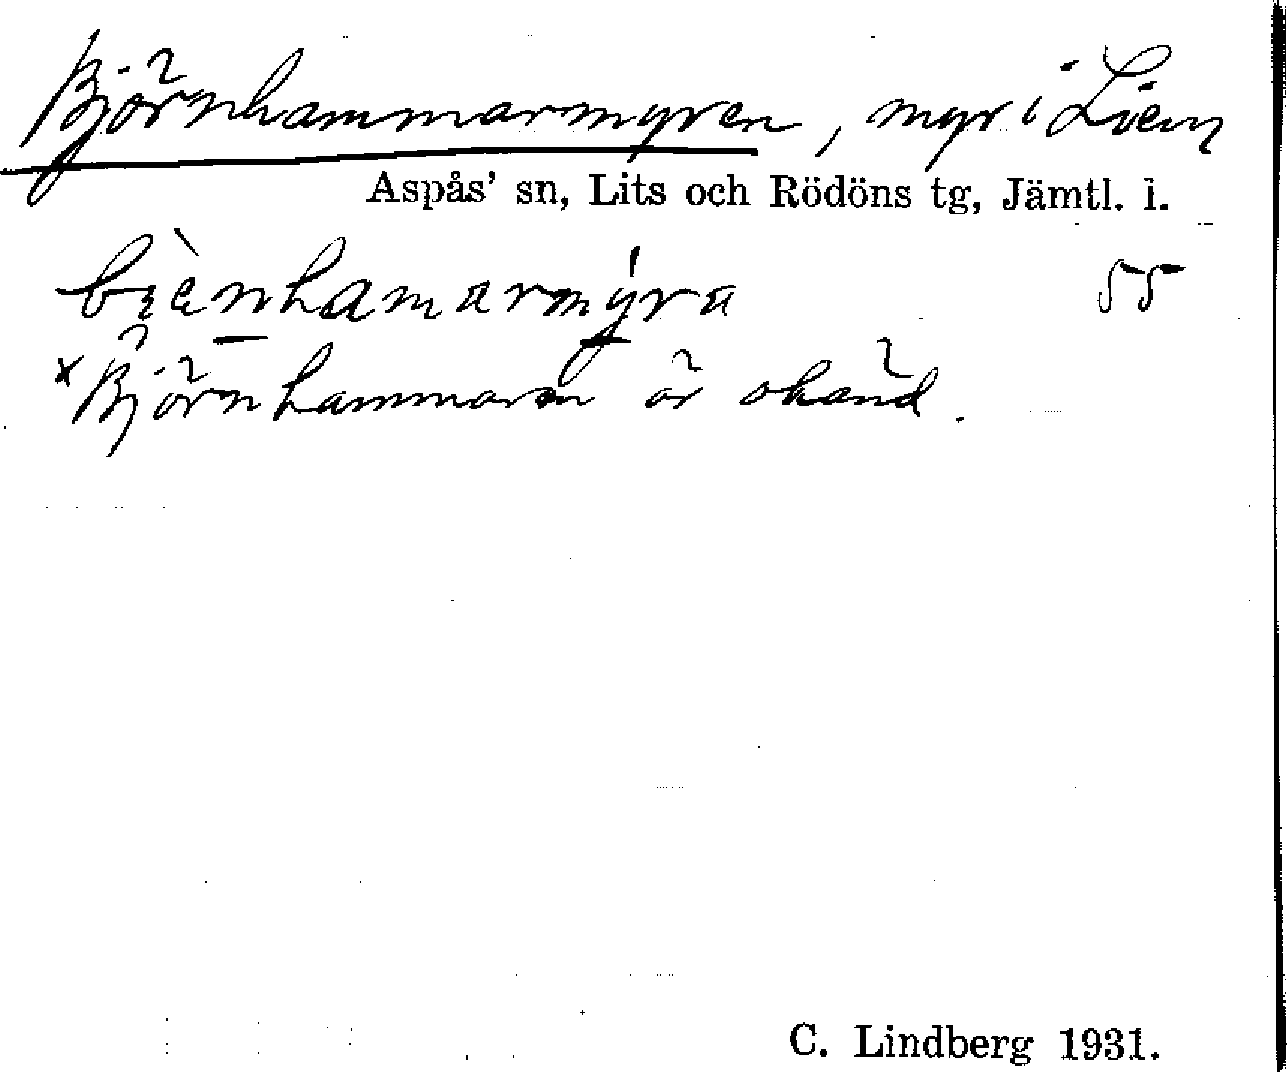 Björnhammarmyren, myr i Lien
Aspås' sn, Lits och Rödöns tg, Jämtl. l.
55
*Björnhammaren är okänd.
C. Lindberg 1931.